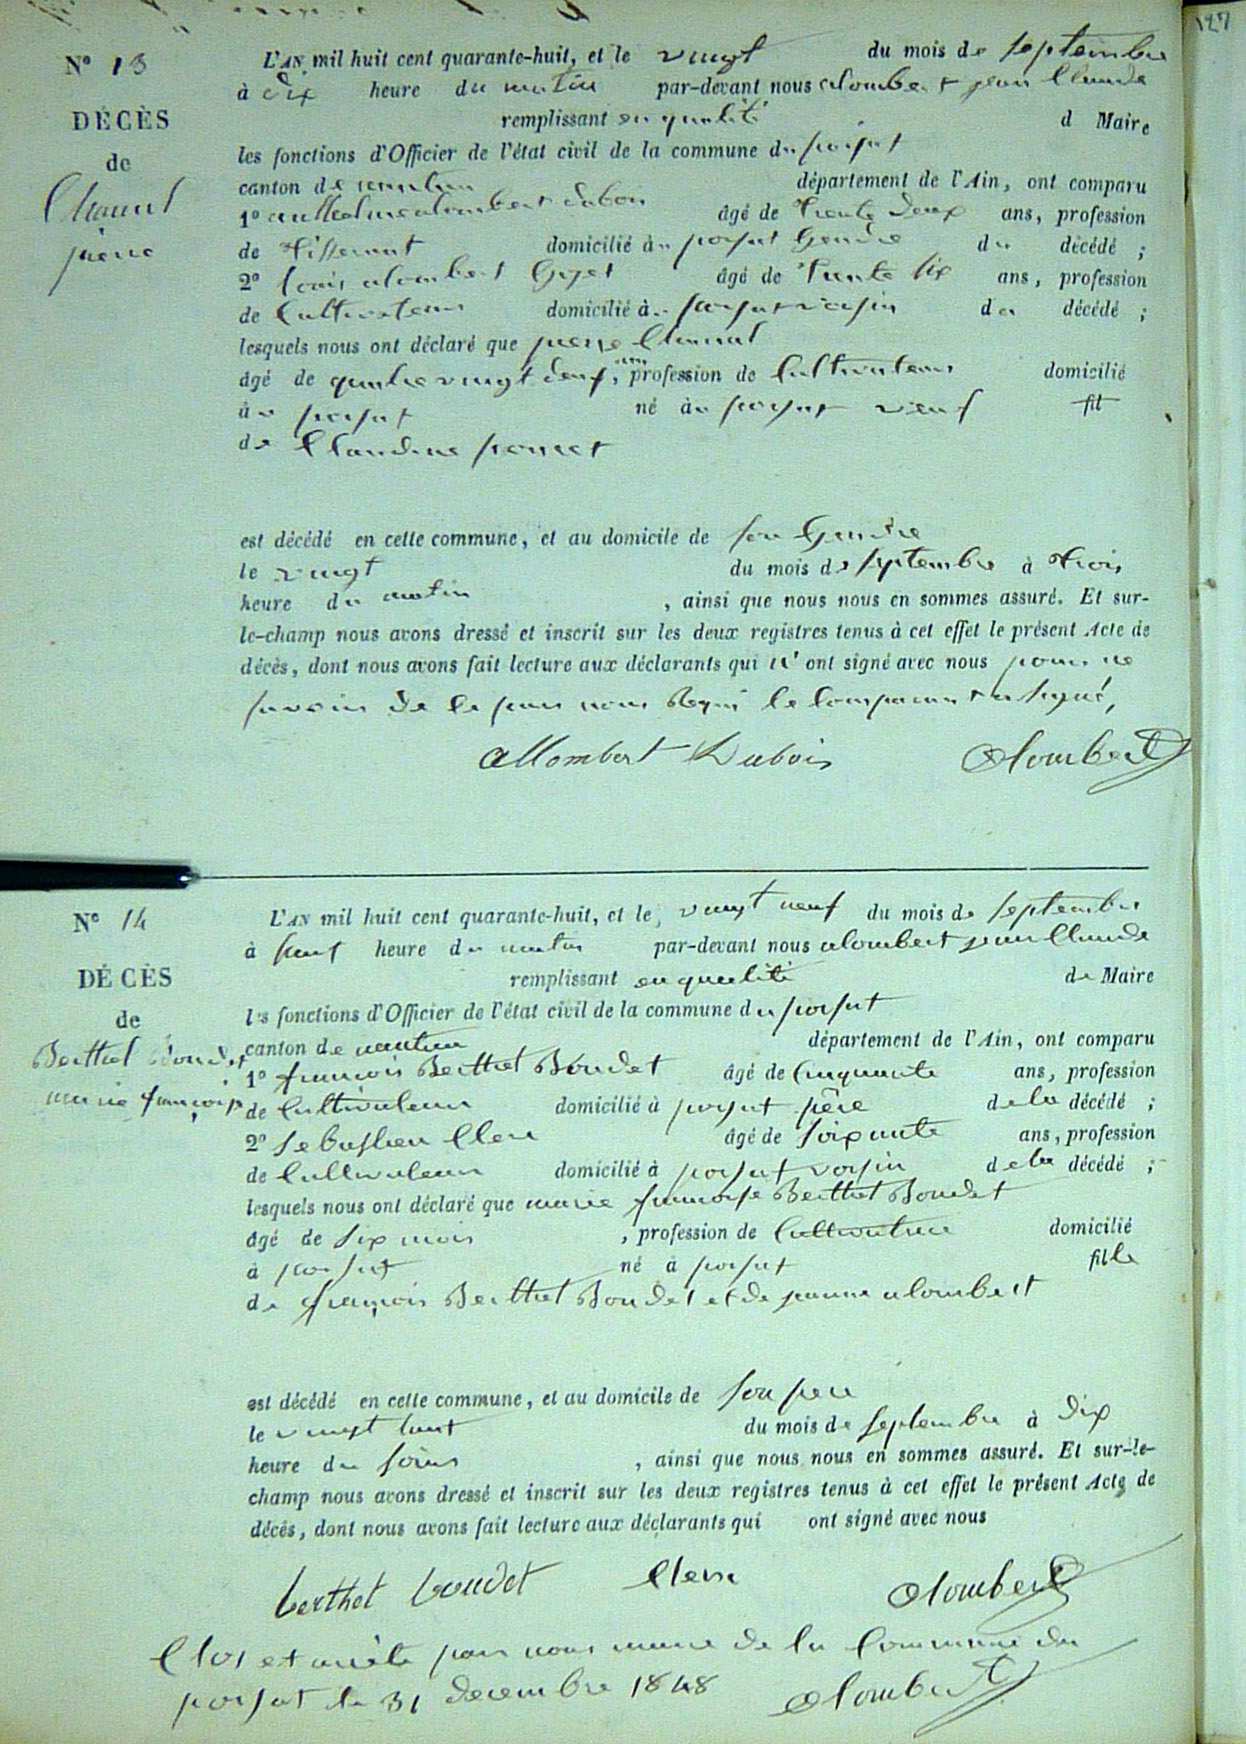 127
N° 13
DÉCÈS
de
Chanut
pierre
L'AN mil huit cent quarante-huit, et le vingt du mois de septembre
à dix heure du matin par-devant nous alombert jean Claude
remplissant en qualité d Maire
les fonctions d'Officier de l'état civil de la commune du poizat
canton de nantua département de l'Ain, ont comparu
1° anthelme alombert dubois âgé de Trente deux ans, profession
de Tisserant domicilié au poizat Gendre du décédé ;
2° louis alombert Goget âgé de Trente six ans, profession
de Cultivateur domicilié au poizat voisin du décédé ;
lesquels nous ont déclaré que pierre Chanut
âgé de quatre vingt deux ans, profession de Cultivateur domicilié
au poizat né au poizat veuf fil
de Claudine poncet
est décédé en cette commune, et au domicile de son Gendre
le vingt du mois de septembre à trois
heure du matin , ainsi que nous nous en sommes assuré. Et sur-
le-champ nous avons dressé et inscrit sur les deux registres tenus à cet effet le présent Acte de
décès, dont nous avons fait lecture aux déclarants qui n'ont signé avec nous pour ne
savoir de le par nous Requi le comparant a signé,
Allombert Dubois Alombert
N° 14
DÉCÈS
de
Berthet Boudet
marie françoise
L'AN mil huit cent quarante-huit, et le vingt neuf du mois de septembre
à heure du matin par-devant nous alombert jean Claude
remplissant en qualité de Maire
les fonctions d'Officier de l'état civil de la commune du poizat
canton de nantua département de l'Ain, ont comparu
1° françois Berthet Boudet âgé de Cinquante ans, profession
de Cultivateur domicilié à poizat père de la décédé ;
2° Sebastien Clerc âgé de soixante ans, profession
de Cultivateur domicilié à poizat voisin de la décédé ;
lesquels nous ont déclaré que marie françoise Berthet Boudet
âgé de six mois , profession de Cultivatrice domicilié
à poizat né à poizat fille
de françois Berthet Boudet et de jeanne alombert
est décédé en cette commune, et au domicile de son père
le vingt huit du mois de septembre à dix
heure du soir , ainsi que nous nous en sommes assuré. Et sur-le-
champ nous avons dressé et inscrit sur les deux registres tenus à cet effet le présent Acte de
décès, dont nous avons fait lecture aux déclarants qui ont signé avec nous
berthet boudet Clerc Alombert
Clos et arrêté par nous maire de la Commune du
poizat le 31 decembre 1848 Alombert